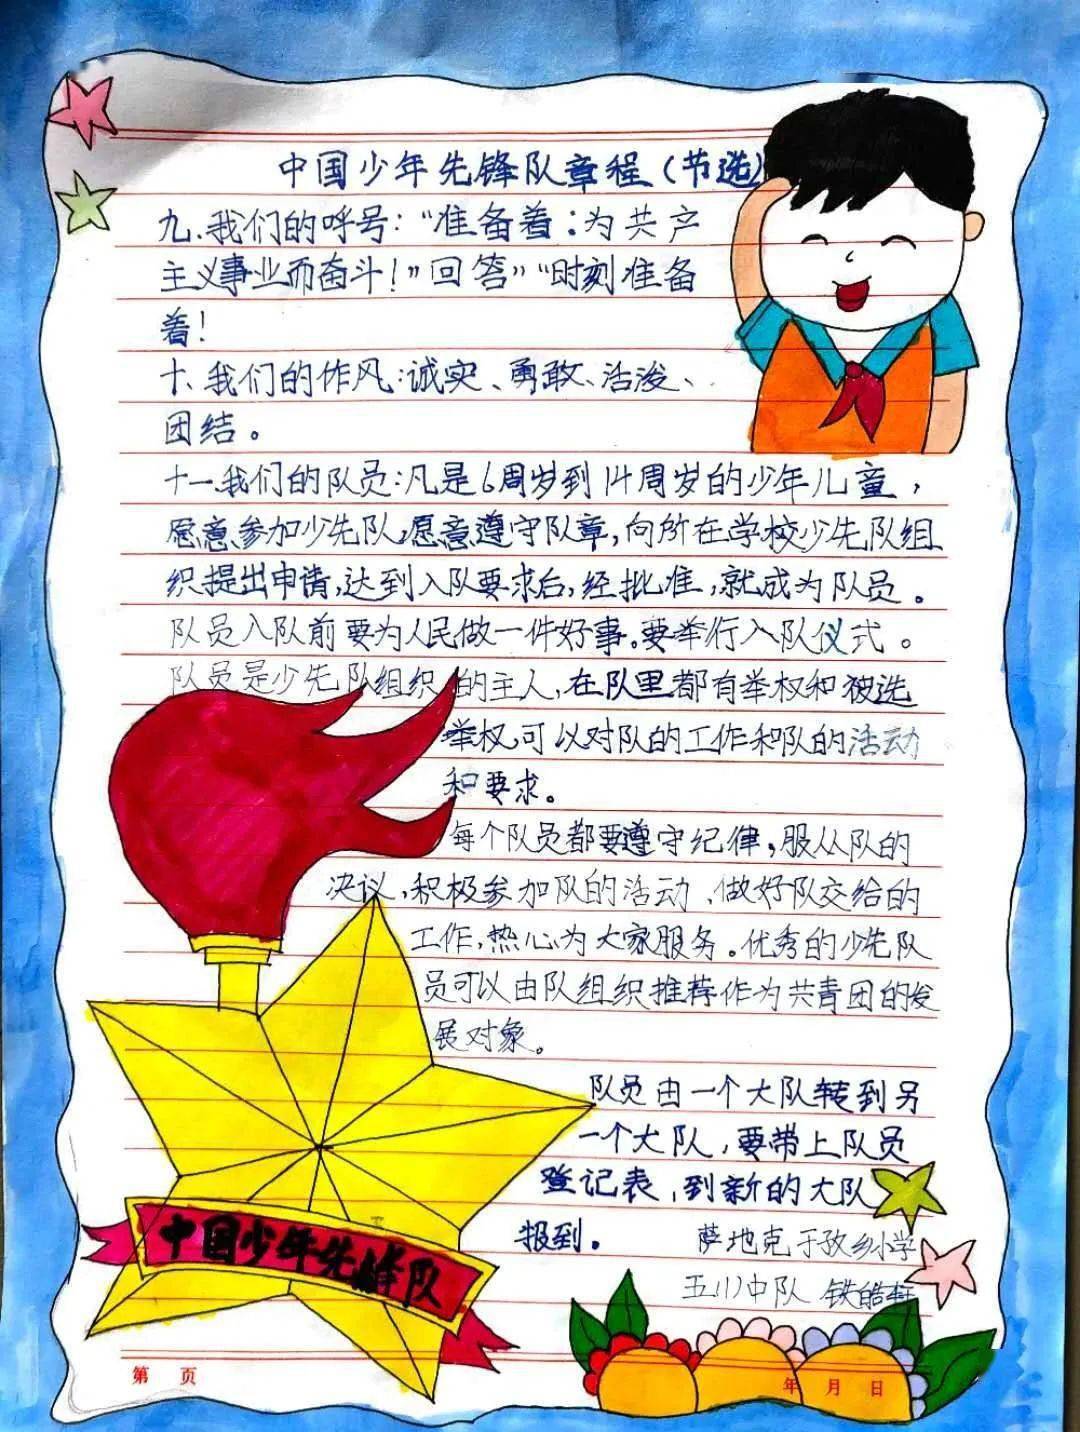 中国少年先锋队章程(节选)
九、我们的呼号:“准备着:为共产
主义事业而奋斗!”回答”“时刻准备
着!
十、我们的作风:诚实、勇敢、活泼、
团结。
十一、我们的队员:凡是6周岁到14周岁的少年儿童,
愿意参加少先队,愿意遵守队章,向所在学校少先队组
织提出申请,达到入队要求后,经批准,就成为队员。
队员入队前要为人民做一件好事。要举行入队仪式。
队员是少先队组织的主人,在队里都有举权和被选
举权,可以对队的工作和队的活动
和要求。
每个队员都要遵守纪律,服从队的
决议,积极参加队的活动、做好队交给的
工作,热心为大家服务。优秀的少先队
员可以由队组织推荐作为共青团的发
展对象。
队员由一个大队转到另
一个大队,要带上队员
登记表,到新的大队
报到。
萨地克于孜乡小学
五(1)中队 铁皓轩
中国少年先锋队
第 页
年 月 日